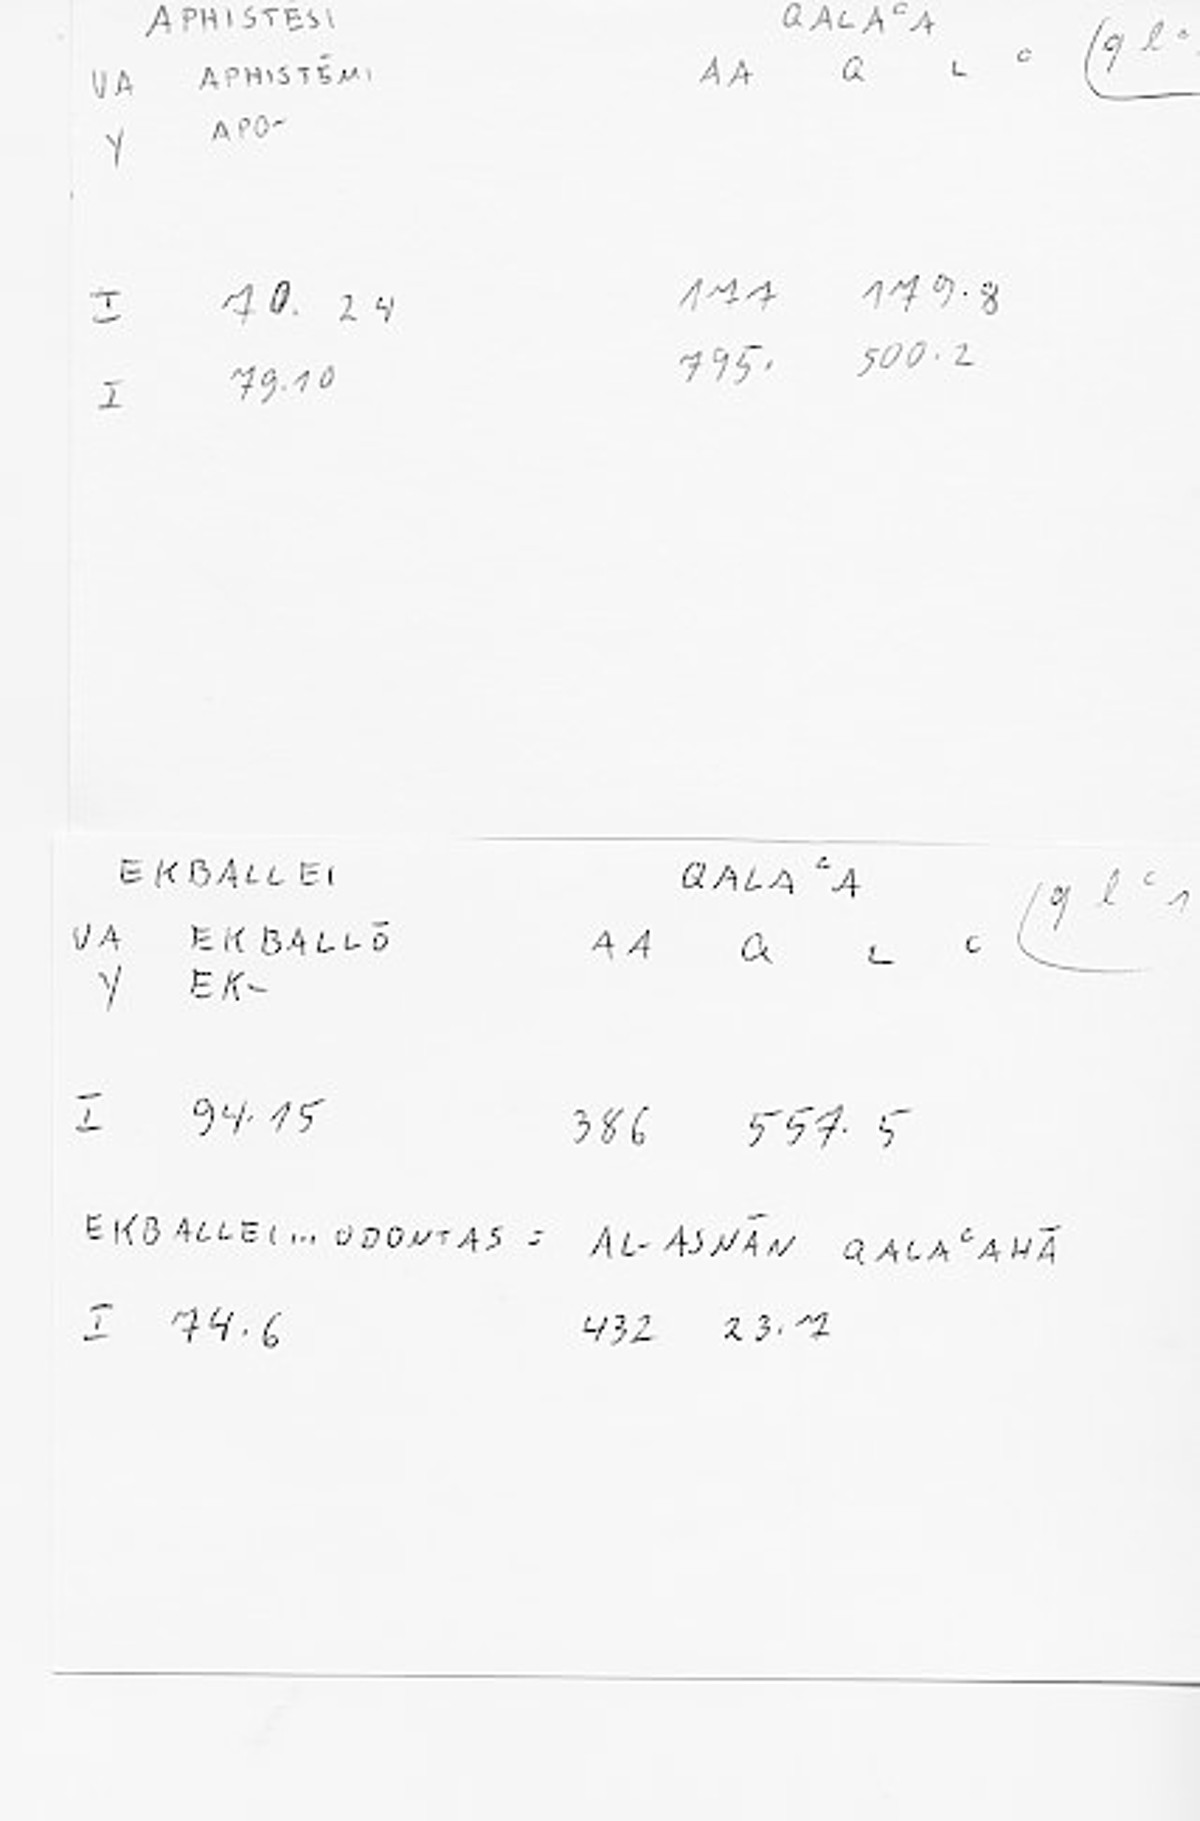 APHISTĒSI QALAᶜA
VA APHISTĒMI AA Q L ᶜ (q l ᶜ
Y APO-
I 70. 24 111 179.8
I 79.10 795. 500.2
EKBALLEI QALAᶜA
VA EKBALLŌ AA Q L ᶜ (q l ᶜ 1
Y EK-
I 94.15 386 557.5
EKBALLEI... ODONTAS = AL-ASNĀN QALAᶜAHĀ
I 74.6 432 23.1